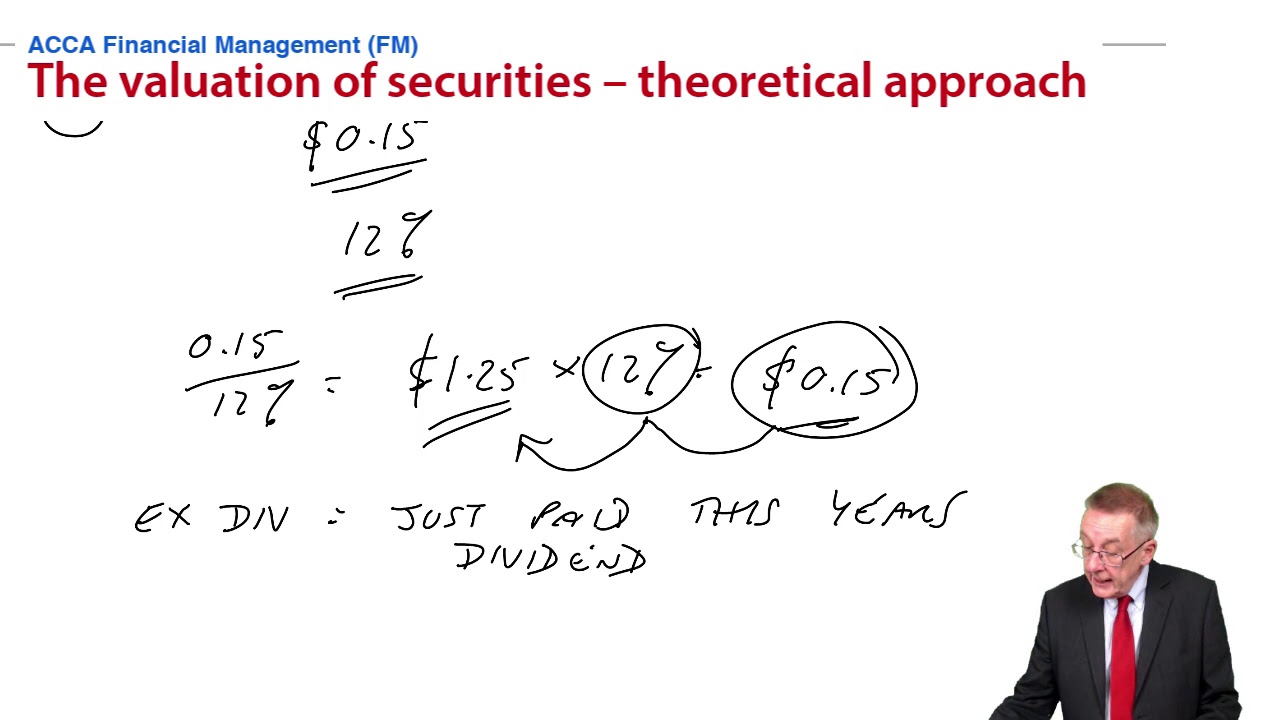 ACCA Financial Management (FM)
The valuation of securities – theoretical approach
$0.15
12%
0.15
12% = $1.25 × 12% = $0.15
EX DIV = JUST PAID THIS YEARS
DIVIDEND